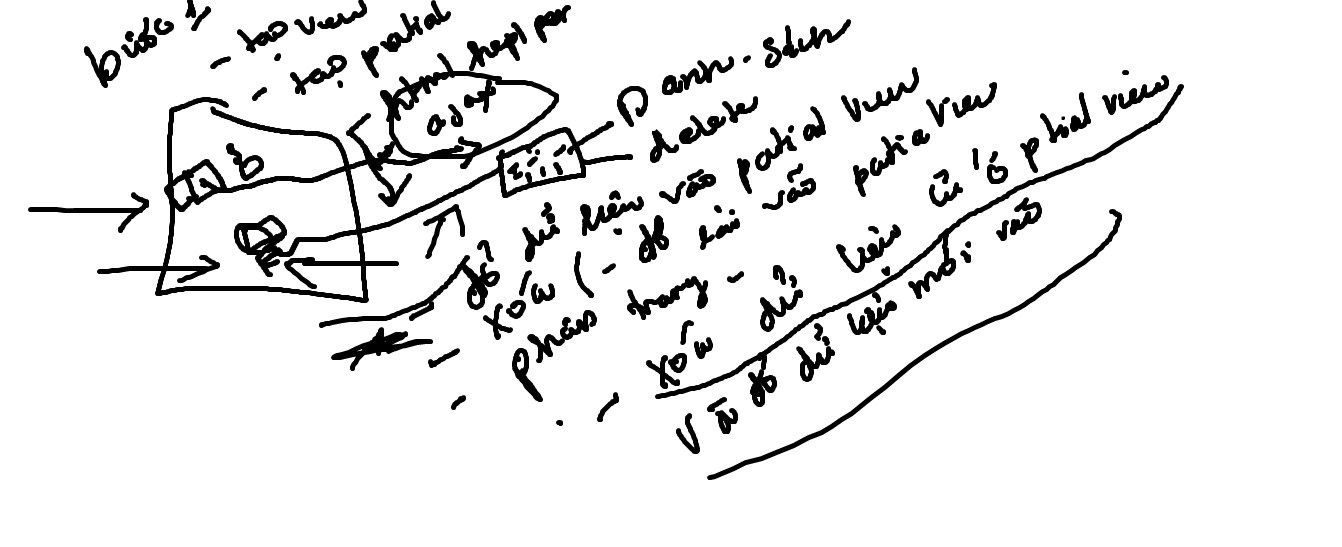 bước 1
- tạo view
- tạo patial
html heplper
ajax
Danh sách
delete
đổ dữ liệu vào patial view
- xóa ( - đổ lại vào patia view
- phân trang -
- xóa dữ liệu cũ ở ptial view
Và đổ dữ liệu mới vào